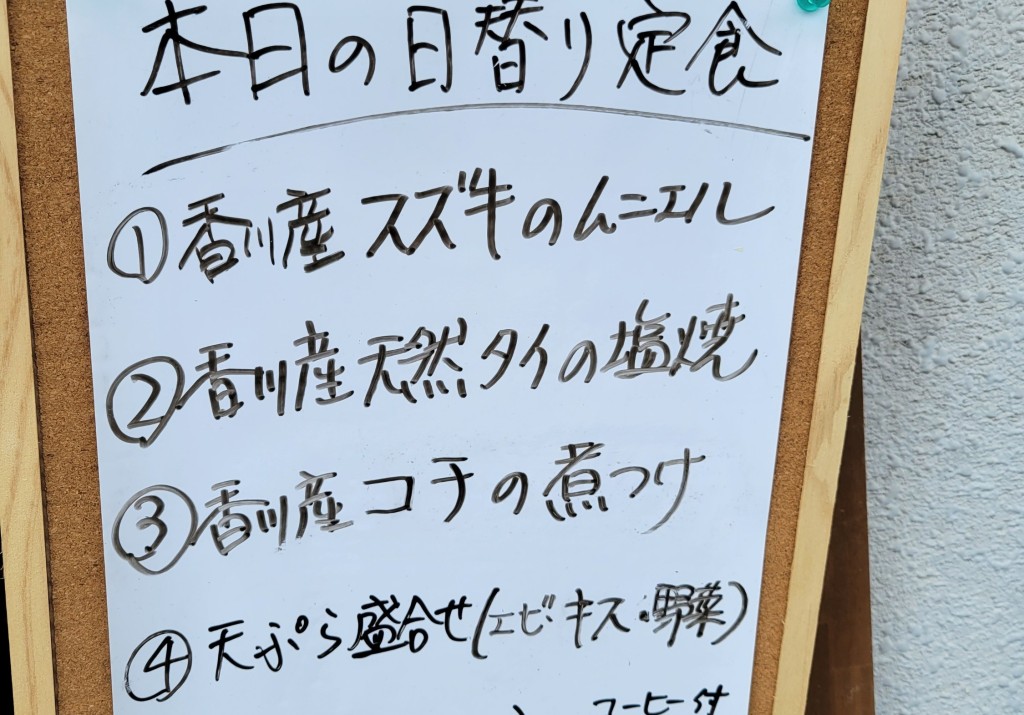 本日の日替り定食
①香川産スズキのムニエル
②香川産天然タイの塩焼
③香川産コチの煮つけ
④天ぷら盛合せ(エビ・キス・野菜)
コーヒー付